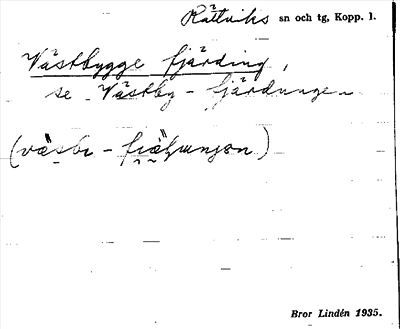 Rättviks sn och tg, Kopp. l.
Västbygge fjärding,
se Västby-fjärdungen
(
Bror Lindén 1935.